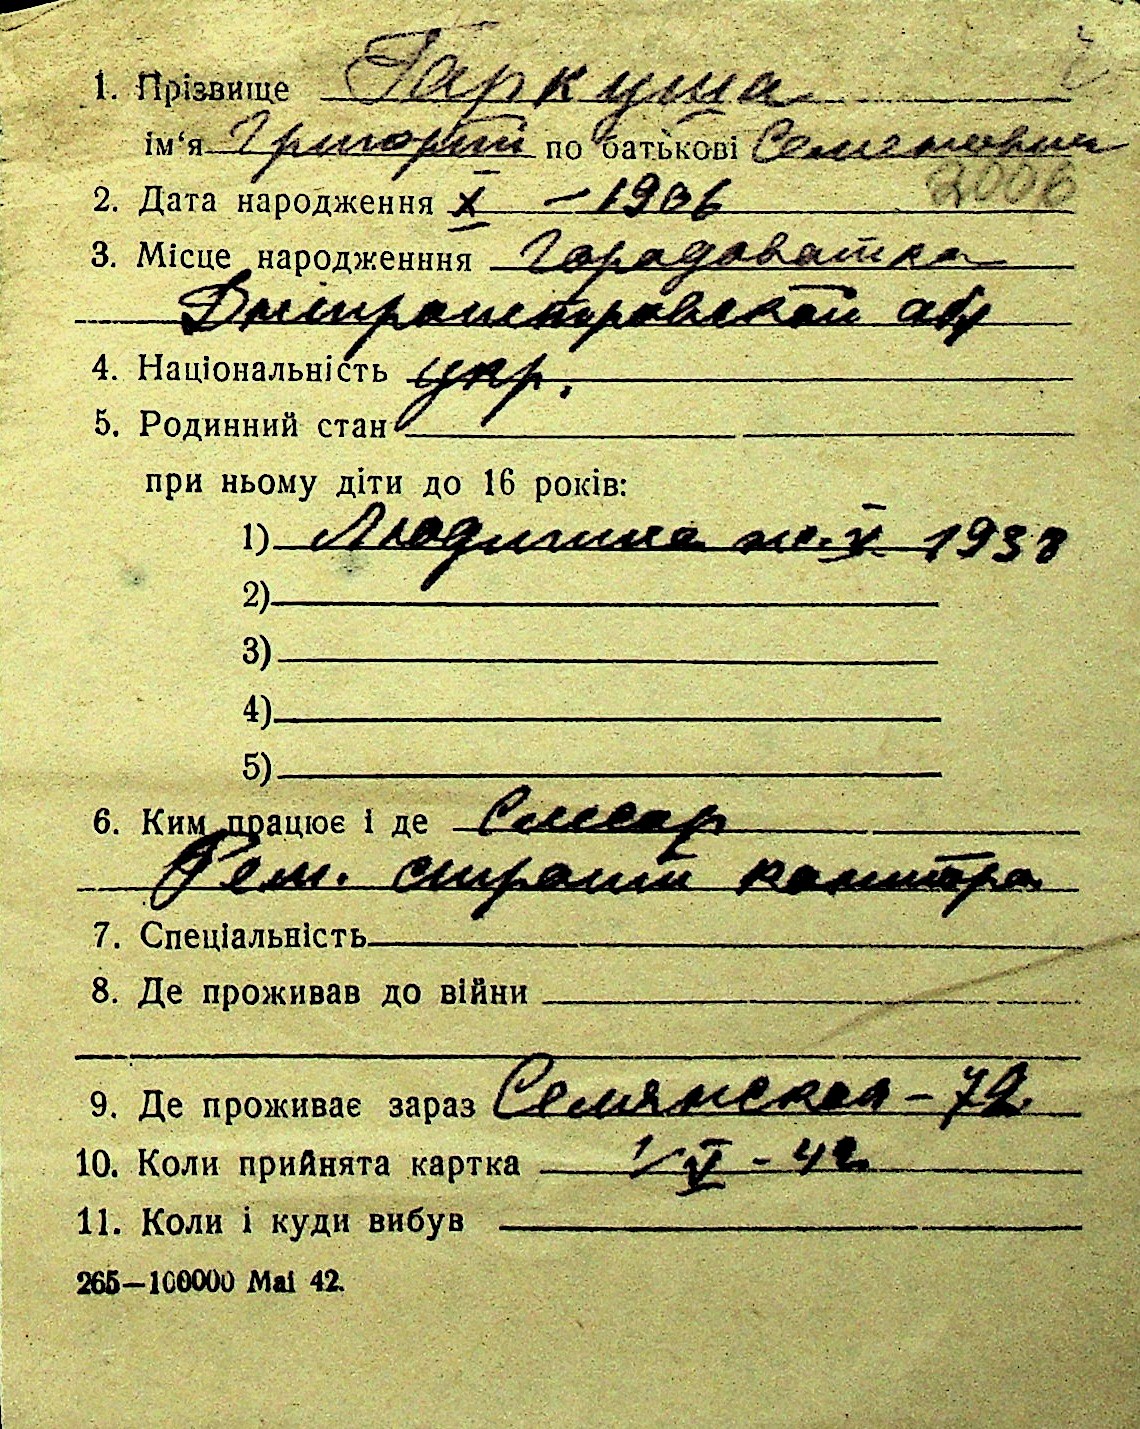 1. Прізвище Гаркуша
ім'я Григорий по батькові Семенович
2006
2. Дата народження X – 1906
3. Місце народженння Городоватка
Днепропетровской обл
4. Національність укр.
5. Родинний стан
при ньому діти до 16 років:
1) Людмила V 1938
2)
3)
4)
5)
6. Ким працює і де Слесар
Рем. строит контора
7. Спеціальність
8. Де проживав до війни
9. Де проживає зараз Семянская – 72
10. Коли прийнята картка 1/V – 42
11. Коли і куди вибув
265—100000 Mai 42.